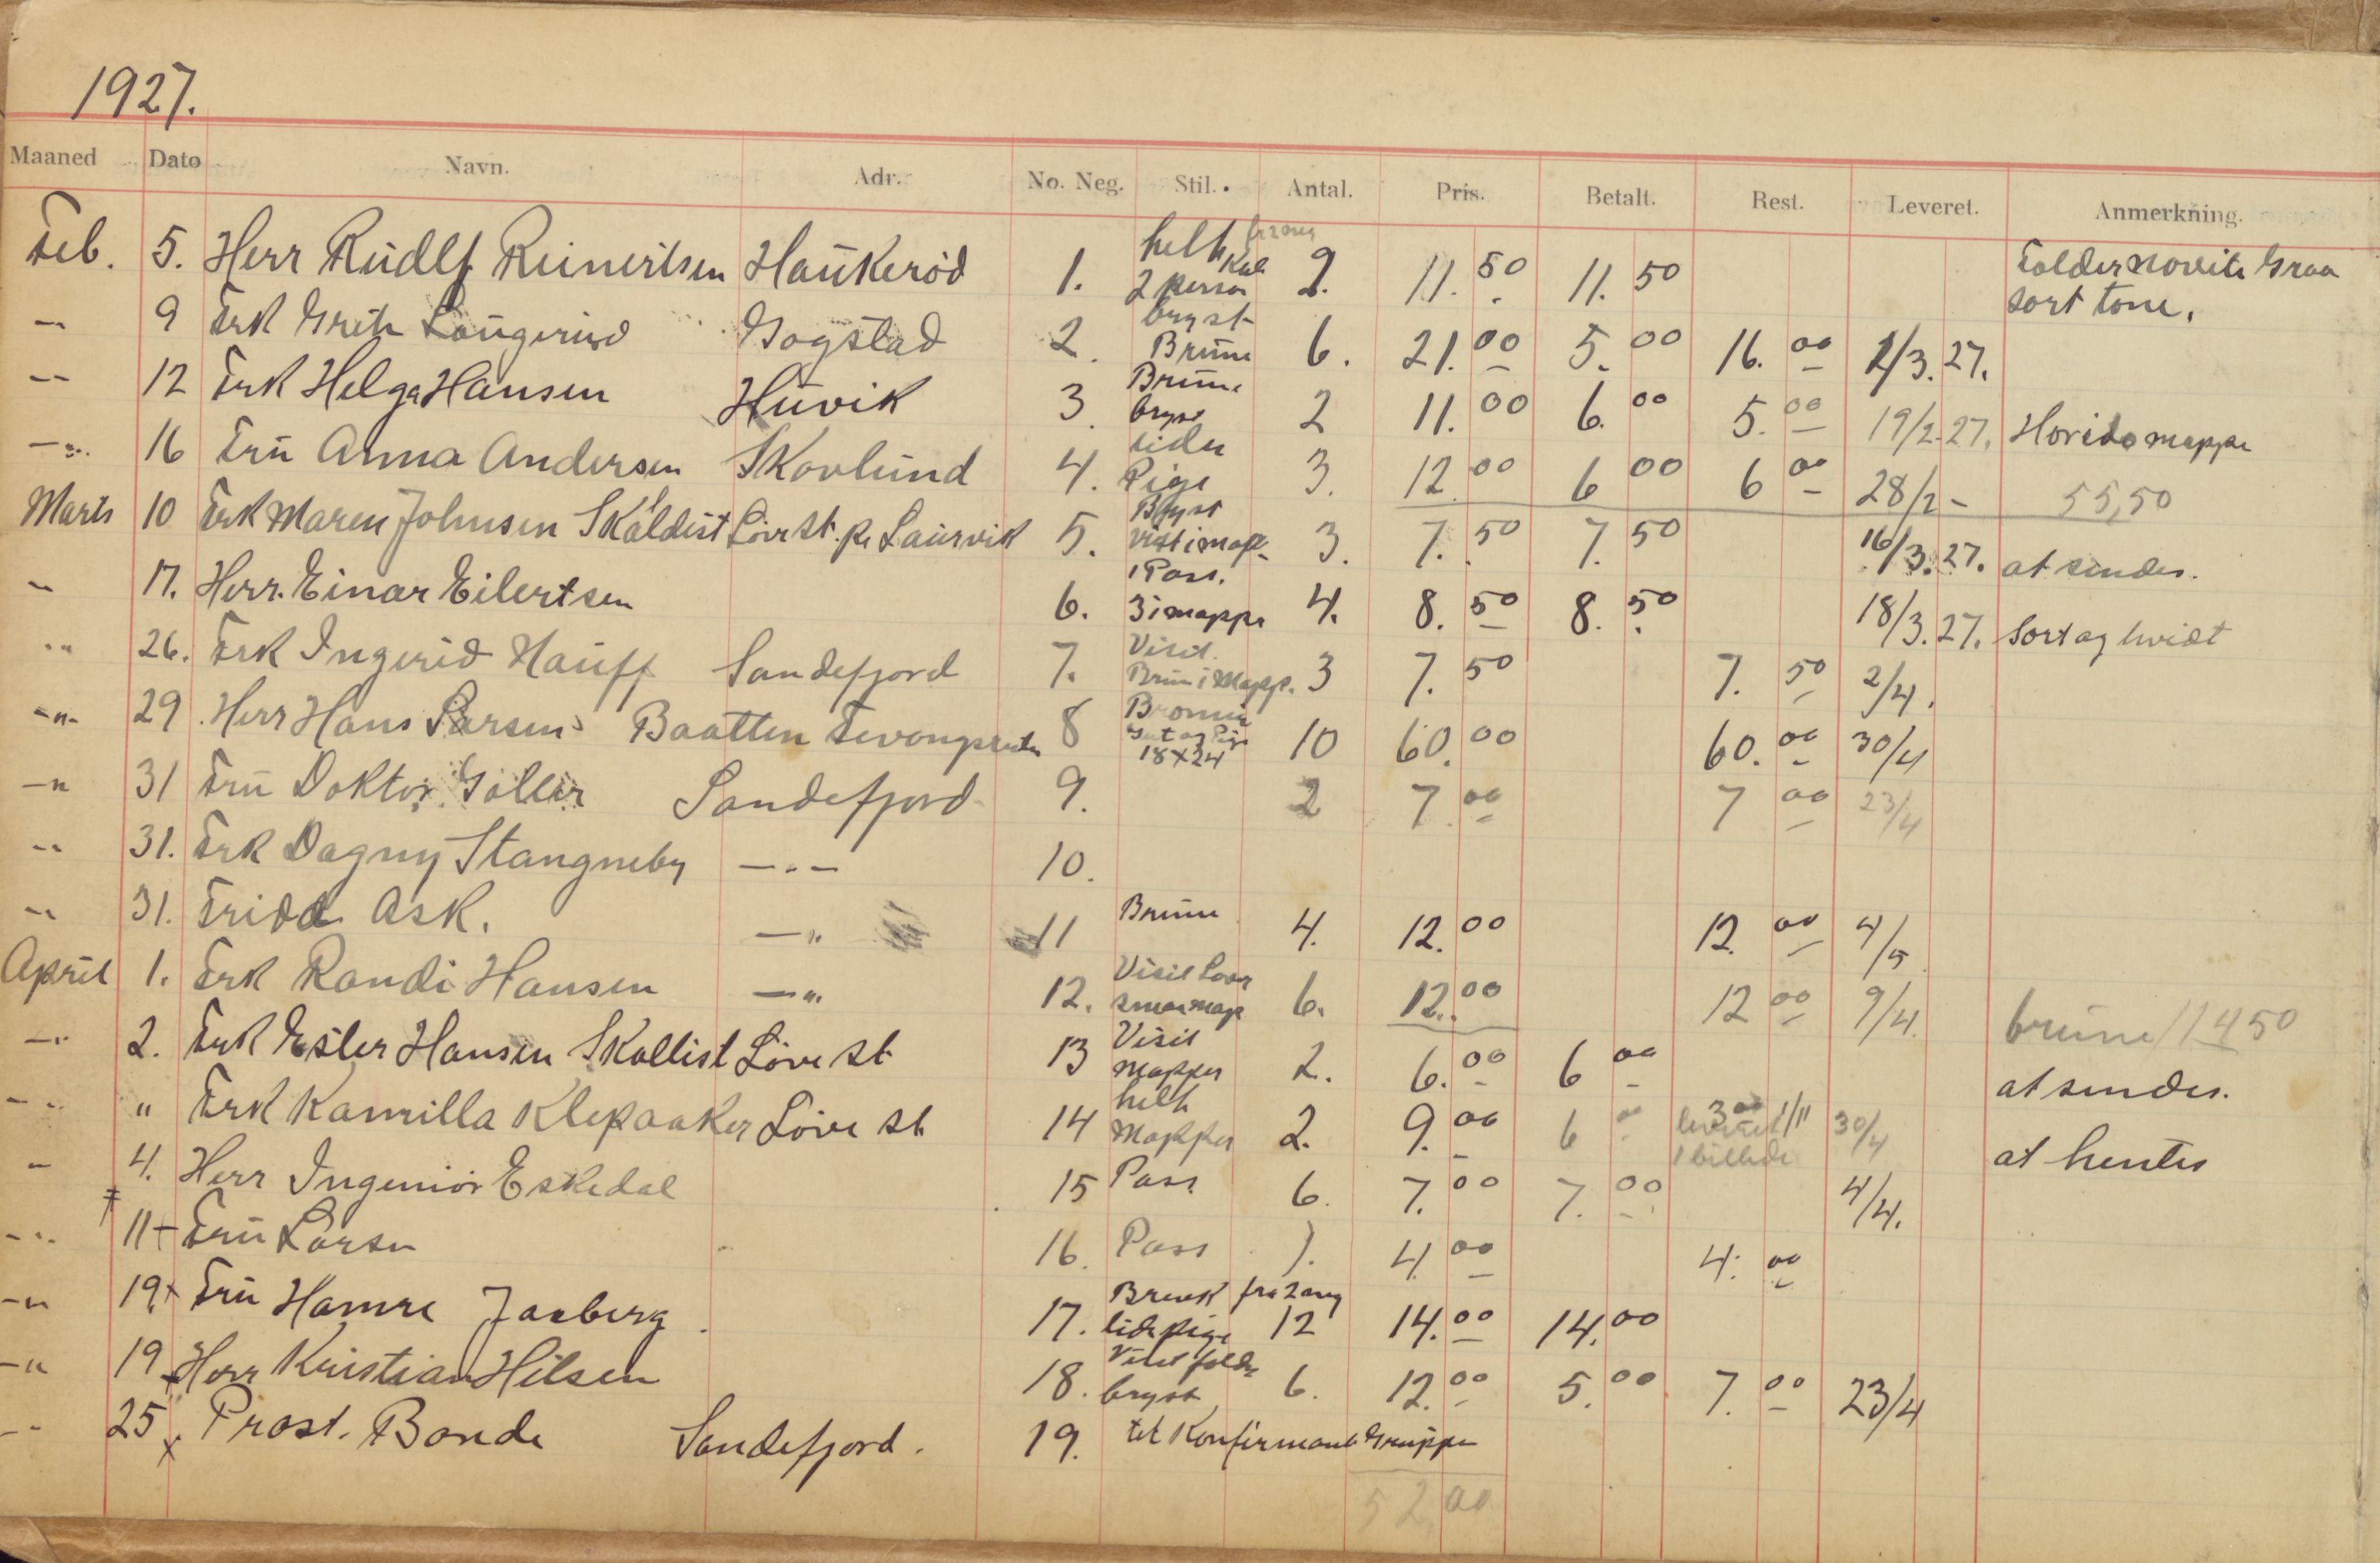 1927.
Maaned Dato Navn. Adr. No. Neg. Stil. Antal. Pris. Betalt. Rest. Leveret. Anmerkning.
Feb. 5. Herr Rudlf Reinertsen Haukerød 1. helt 2 person 2. 11.50 11.50 Folder Graa sort tone.
— 9 Frk Grete Laugerud Gogstad 2. bryst Brune 6. 21.00 5.00 16.00 1/3.27.
— 12 Frk Helga Hansen Huvik 3. Brune bryst 2 11.00 6.00 5.00 19/2.27. mappe
—"— 16 Fru Anna Andersen Skovlund 4. sider Pige 3. 12.00 6 00 6 00 28/2 - 55,50
Marts 10 Frk Maren Johnsen Skaldist Löve St. pr Laurvik 5. Bryst Visit i map 3. 7.50 7.50 16/3.27. at sendes.
" 17. Herr. Einar Eilertsen 6. 1 Pass. 3 i mappe 4. 8.50 8.50 18/3.27. Sort og hvidt
" 26. Frk Ingerid Hauff Sandefjord 7. Visit. Brun i Mapp. 3 7.50 7.50 2/4.
-"- 29. Herr Hans Larsen Baatten 8 Gut og Pige 18x24 10 60.00 60.00 30/4
—" 31 Fru Doktor Göller Sandefjord 9. 2 7.00 7 00 23/4
" 31. Frk Dagny Stangneby —"— 10.
" 31. Frida Ask. —" 11 Brune 4. 12.00 12.00 4/5
April 1. Frk Randi Hansen —" 12. Visit map 6. 12.00 12 00 9/4. brune 114 50
—" 2. Frk Ester Hansen Skallist Löve St 13 Visit Mapper 2. 6.00 6 00 at sendes.
—" " Frk Kamilla Klepaaker Löve St. 14 helt Mapper 2. 9.00 6 00 3 00 leveret 1/11 1 billede 30/4 at hentes
" 4. Herr Ingeniör Eskedal 15 Pass 6. 7.00 7.00 4/4.
-" 11+ Fru Larsn 16. Pass 4.00 4.00
-" 19+ Fru Hamre Jaaberg 17. fra 2 lide pige 12 14.00 14.00
-" 19 Herr Kristian Hilsen 18. Visit folder bryst 6. 12.00 5.00 7.00 23/4
-" 25 x Prost. Bonde Sandefjord. 19. tet Konfirmant Gruppe
52,00